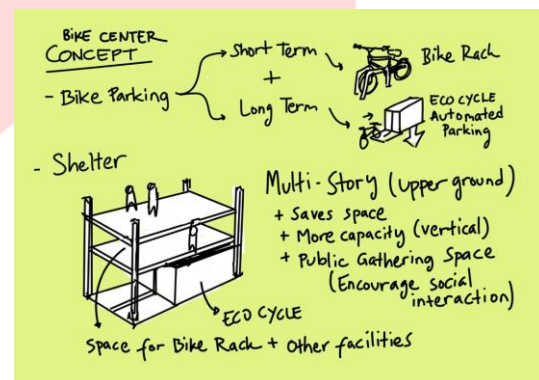 BIKE CENTER
CONCEPT
- Bike Parking
Short Term
+
Long Term
Bike Rack
ECO CYCLE
Automated
Parking
- Shelter
Multi-Story (upper ground)
+ Saves space
+ More capacity (vertical)
+ Public Gathering Space
(Encourage social
interaction)
ECO CYCLE
Space for Bike Rack + Other facilities